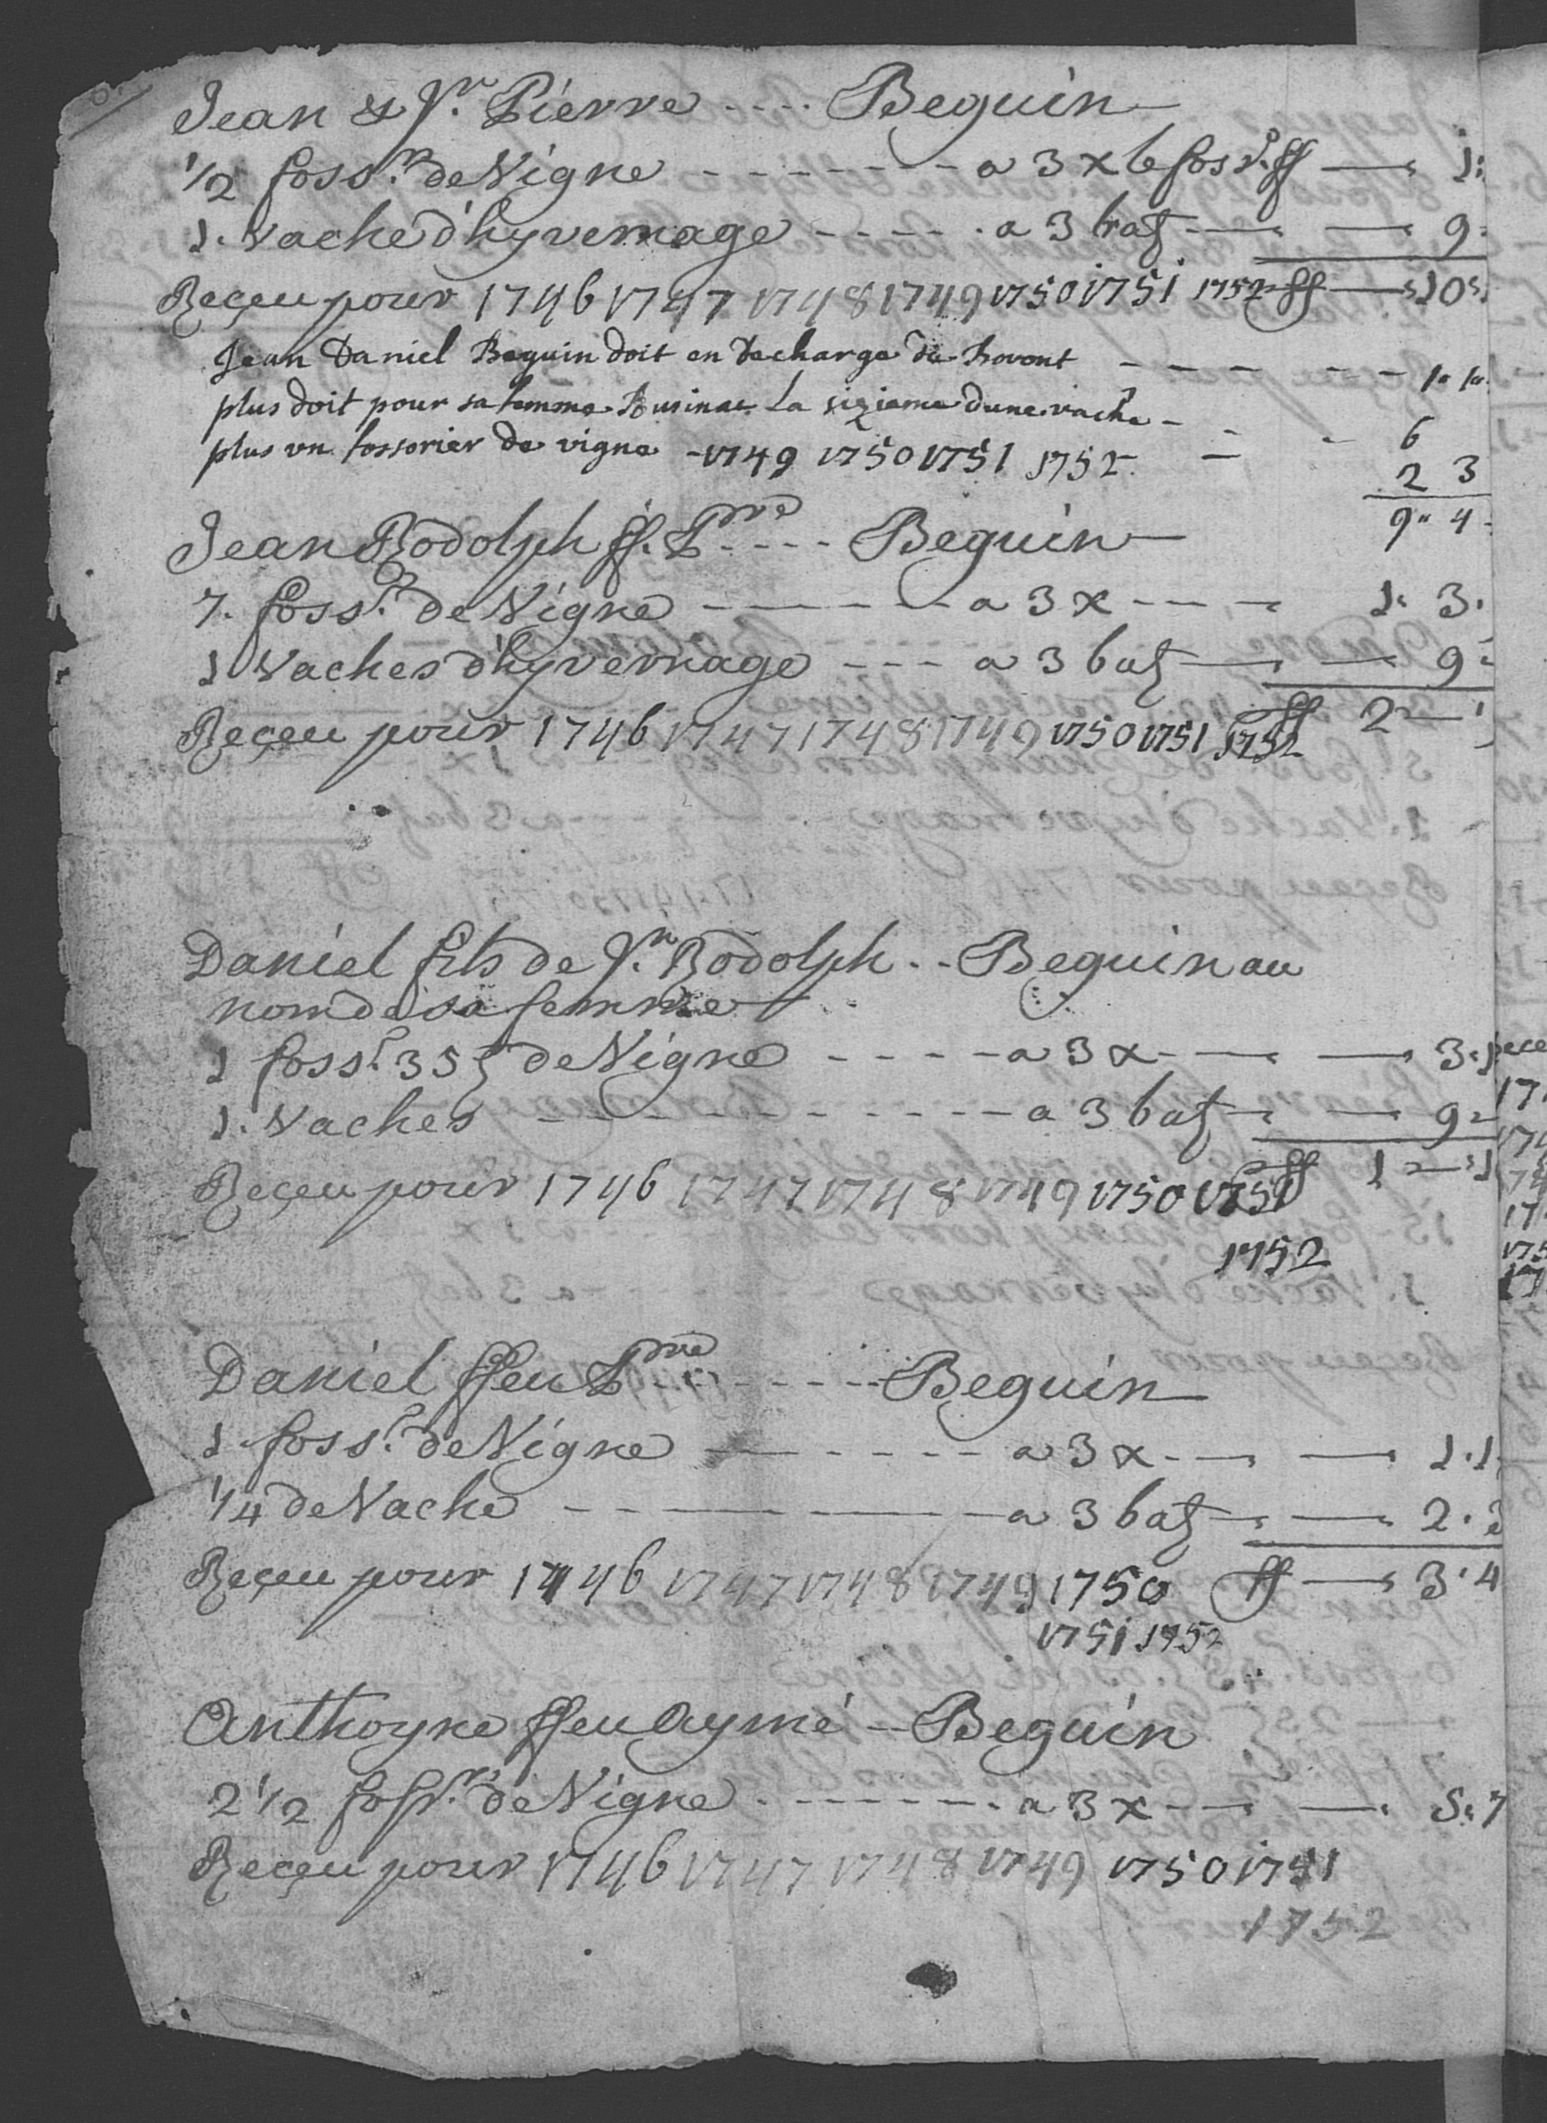 Jean & Jn. Pierre ---- Beguin
1/2 fossr. de Vigne ------- a 3 x le fosr. ff — 1:
1. Vache d'hyvernage ----- a 3 batz — — 9.
Reçeu pour 1746 1747 1748 1749 1750 1751 1752 ff — 10
Jean Daniel Beguin doit en decharge de Bovont ------ 1" 1"
plus doit pour sa femme la sizieme dune vache - - - 6
plus un fossorier de vigne - 1749 1750 1751 1752 — 2 3
9" 4
Jean Rodolph ff. Pre ---- Beguin
7. fossr. de Vigne ------ a 3 x --- 1. 3.
1 Vaches d'hyvernage --- a 3 batz — — 9
Reçeu pour 1746 1747 1748 1749 1750 1751 1752 ff 2 — 1
Daniel fils de Jn. Rodolph .. Beguin au
nom de sa femme
1 fossr. 35 de Vigne ----- a 3 x — — 3.
1. Vaches ---------- a 3 batz — — 9
Reçeu pour 1746 1747 1748 1749 1750 1751 ff 1
1752
Daniel ffeu Pre ------ Beguin
1 fossr. de Vigne ------ a 3 x — — 1.1
1/4 de Vache ------ a 3 batz — — 2.3
Reçeu pour 1746 1747 1748 1749 1750 ff — 3.4
1751 1752
Anthoyne ffeu Aymé — Beguin
2 1/2 fossrs. de Vigne -------- a 3 x — — . 7
Reçeu pour 1746 1747 1748 1749 1750 1751
1752